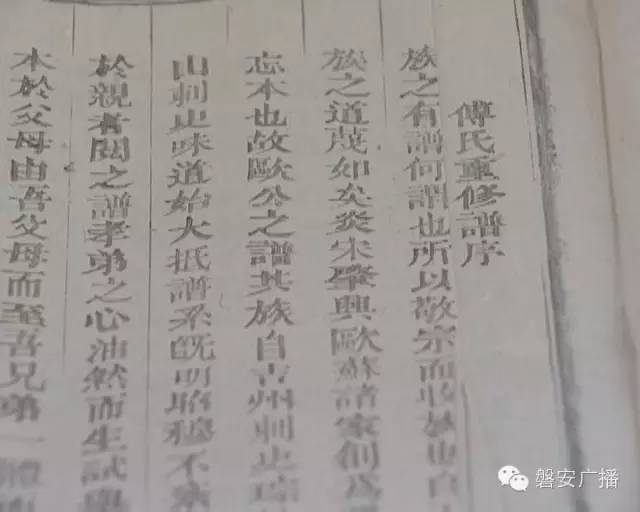 傅氏重修譜序
族之有譜何謂也所以敬宗而收族也自
族之道蔑如矣炎宋肇興歐蘇諸家創爲
志本也故歐公之譜其族自吉州刺史琮
山刺史味道始大抵譜系既明昭穆不紊
於親者閱之譜孝弟之心油然而生試思
本於父母由吾父母而至吾兄弟一體而
磐安广播